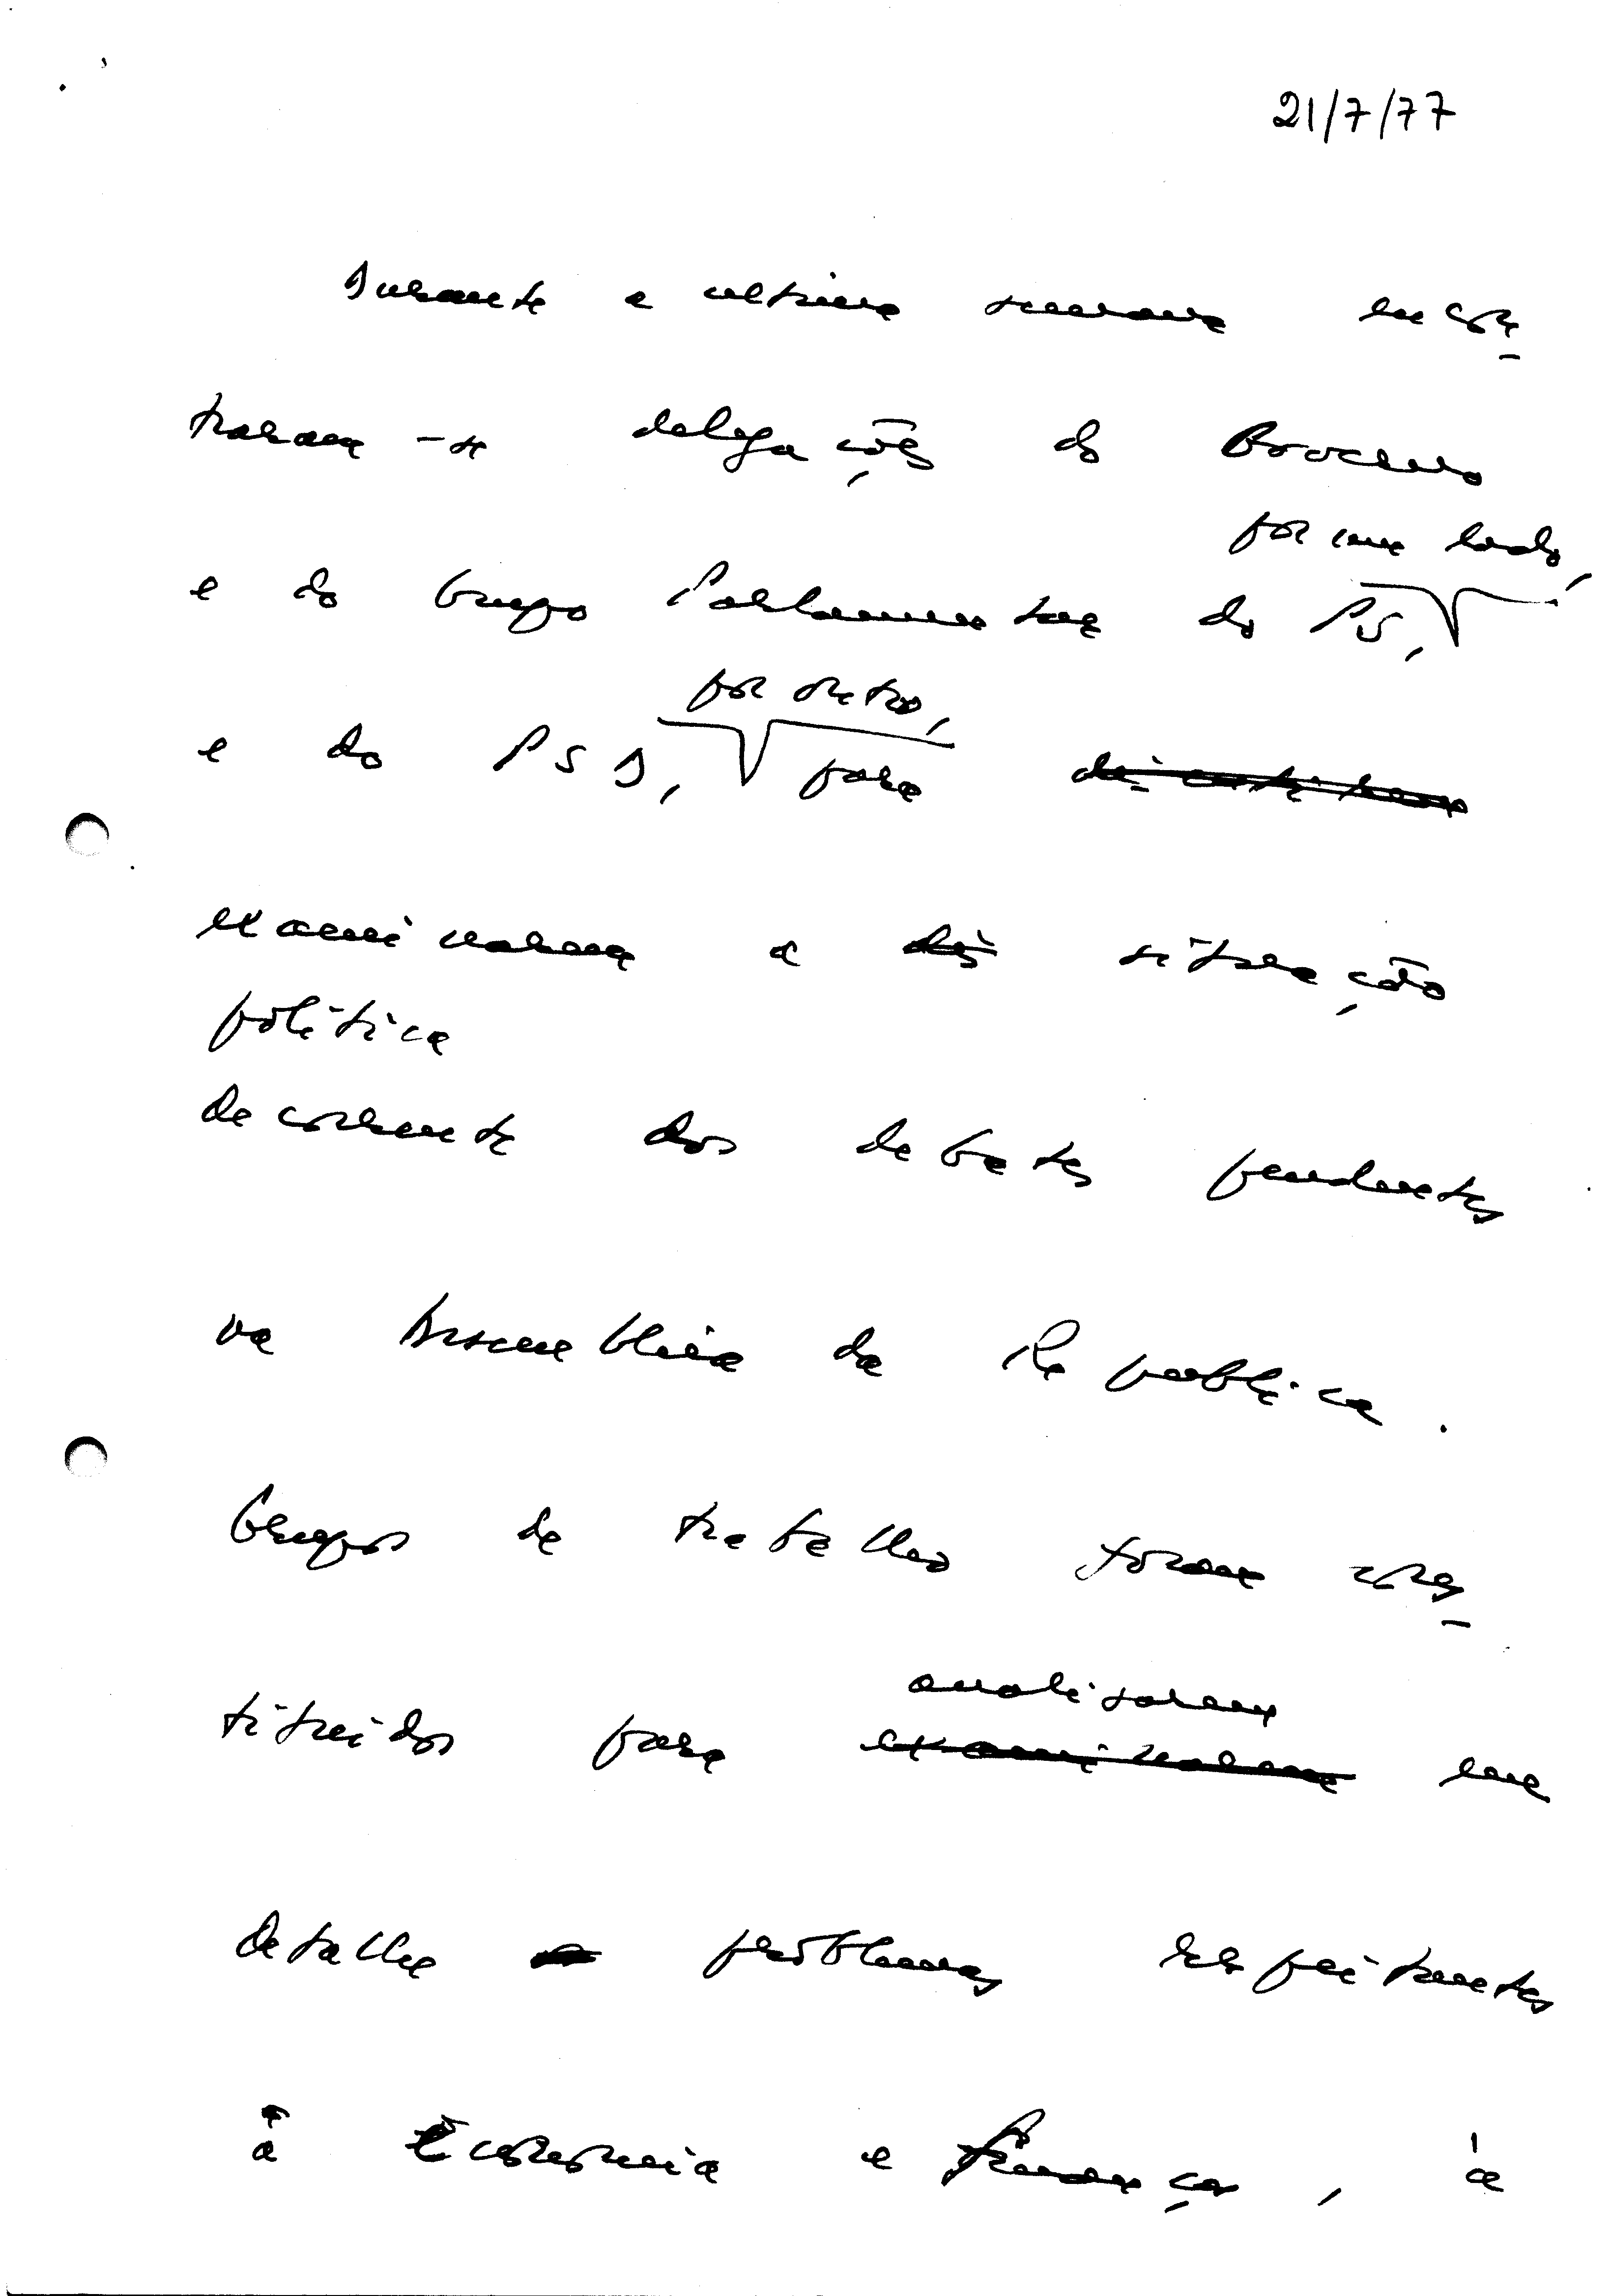 21/7/77
Durante a ultima semana encon-
traram-se delegações do Governo
por um lado,
e do Grupo Parlamentar do PS,
por outro,
e do PSD, para
examinarem a situação
política
decorrente dos debates pendentes
na Assembleia da República.
Grupos de trabalho foram cons-
analisarem
tituidos para examinarem em
detalhe problemas respeitantes
à Economia e Finanças, à